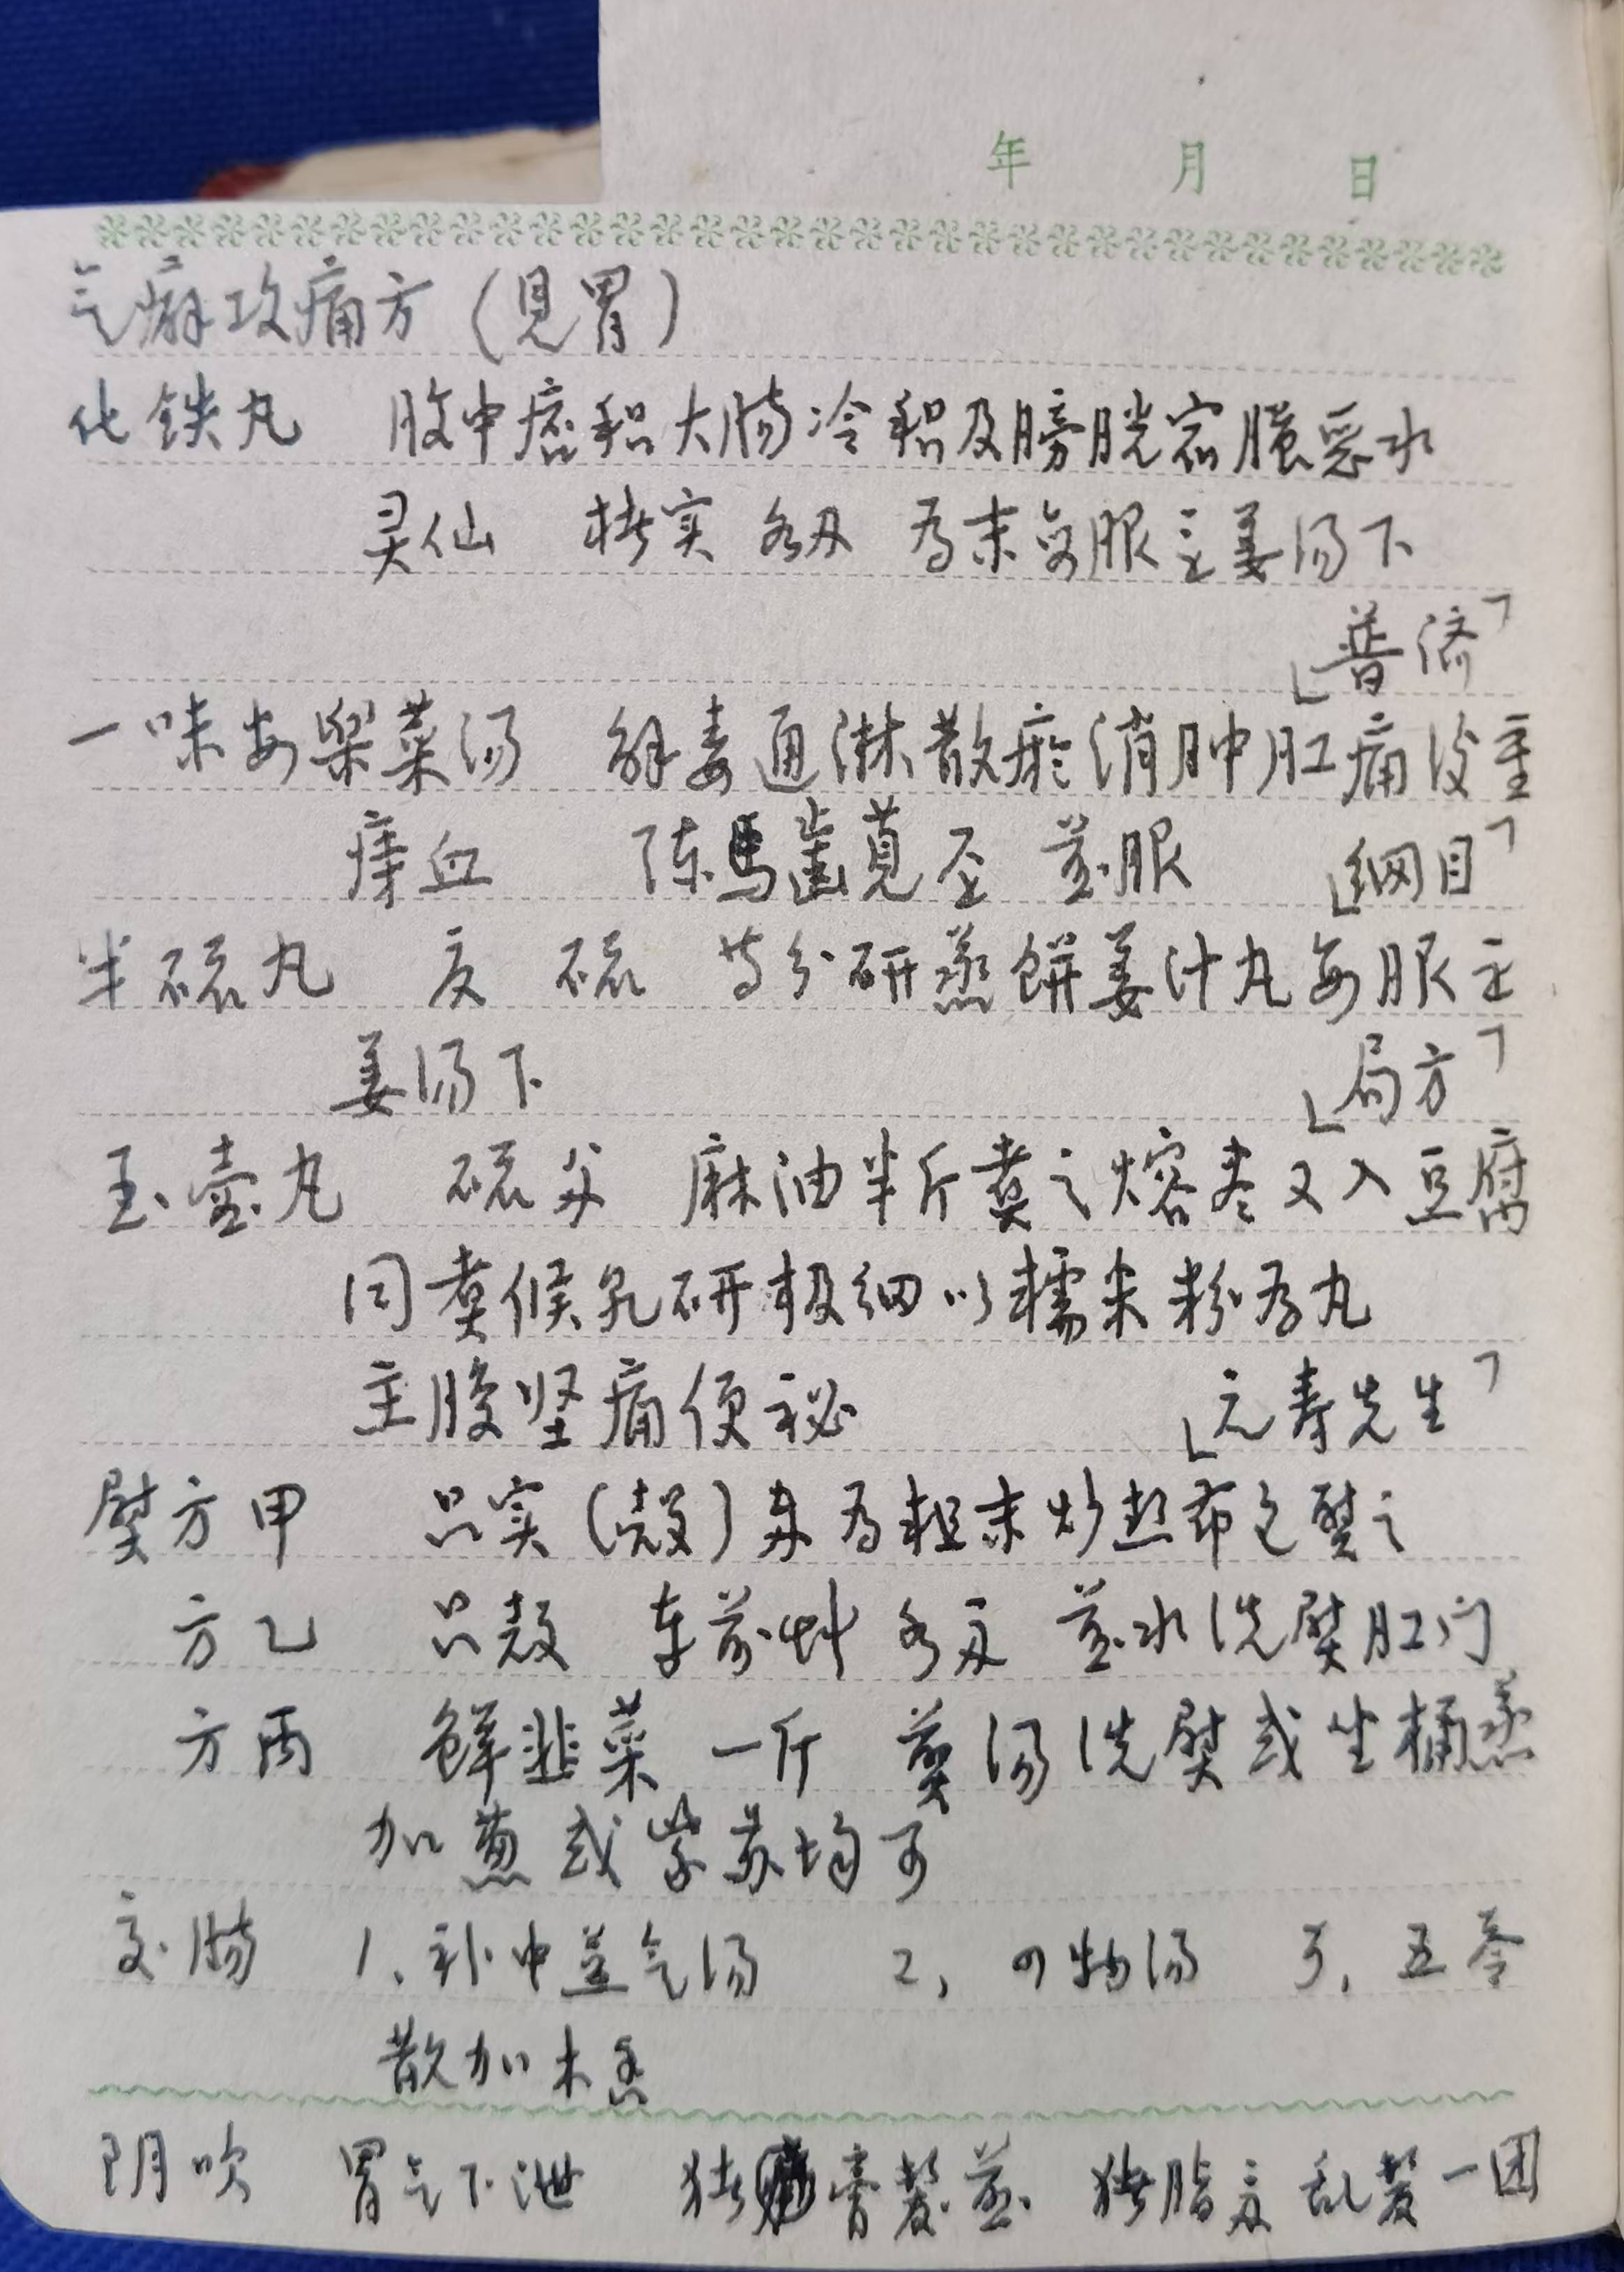 年 月 日
气癖攻痛方（見胃）
化铁丸 腹中痞积大肠冷积及膀胱宿 恶水
灵仙 楮实 各 为末 服 姜汤下
「普济」
一味安樂菜汤 解毒通淋散瘀消肿肛痛後重
痔血 陈馬齒莧 煎服 「纲目」
半硫丸 夏 硫 等分研蒸餅姜汁丸每服
姜汤下 「局方」
玉壶丸 硫 麻油半斤煮之熔尽又入豆腐
同煮候 研极细以糯米粉为丸
主腹坚痛便秘 「元寿先生」
熨方甲 只实（殼） 为粗末炒热布包熨之
方乙 只殼 车前艸 各 煎水洗熨肛门
方丙 鲜韭菜 一斤 煎汤洗熨或坐桶蒸
加葱或紫苏均可
交肠 1、补中益气汤 2、四物汤 3、五苓
散加木香
阴吹 胃气下泄 猪膏髮煎 猪脂 乱髮一团